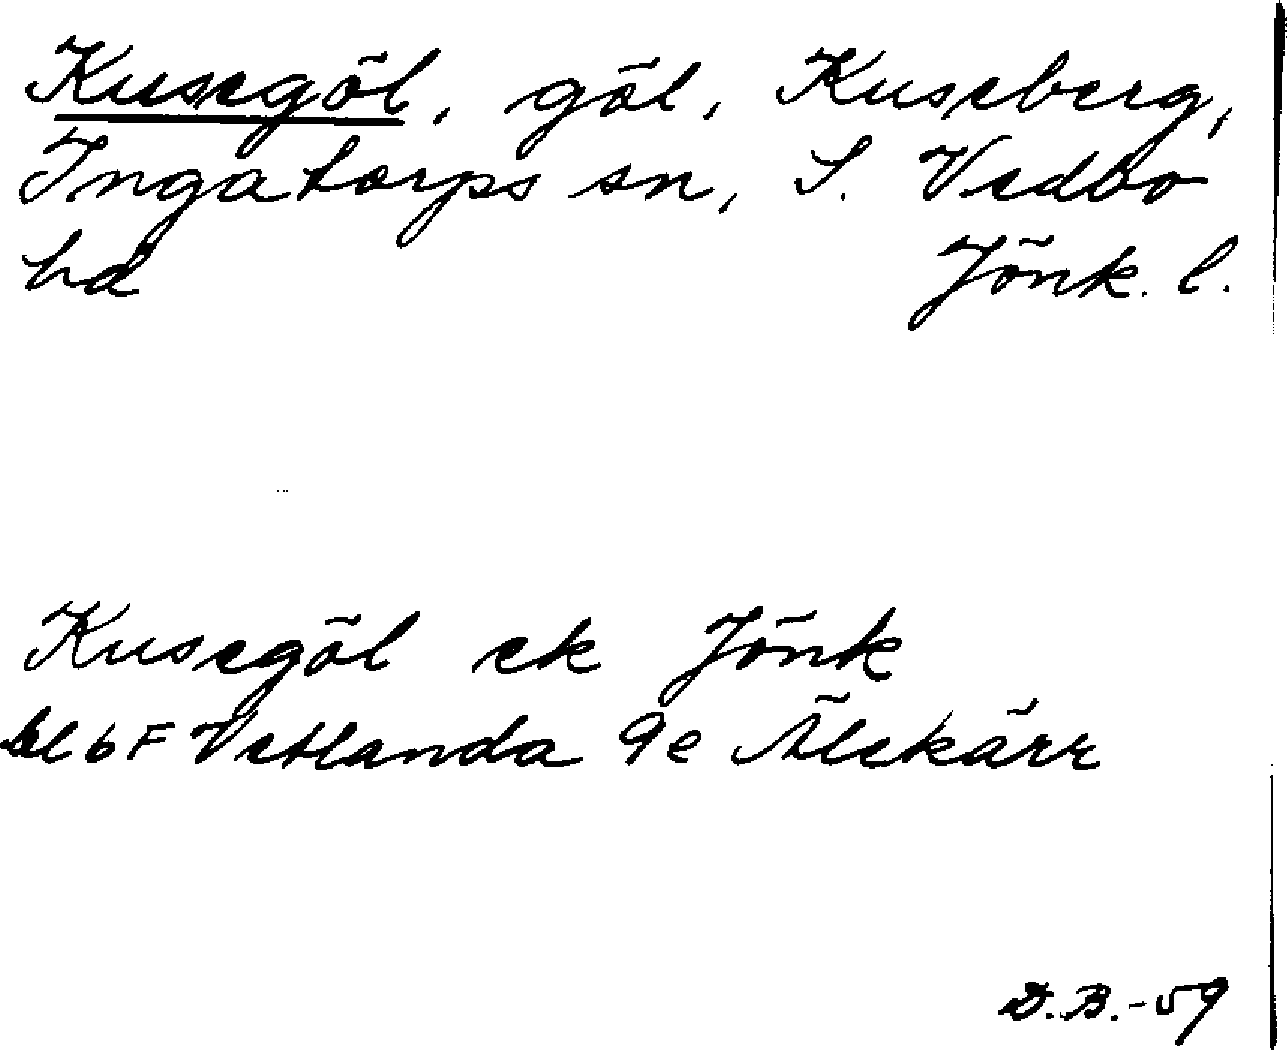 Kusegöl, göl, Kuseberg,
Ingatorps sn, S. Vedbo
hd Jönk. l.
Kusegöl ek Jönk
bl 6 F Vetlanda 9e Älekärr
D.B.-59